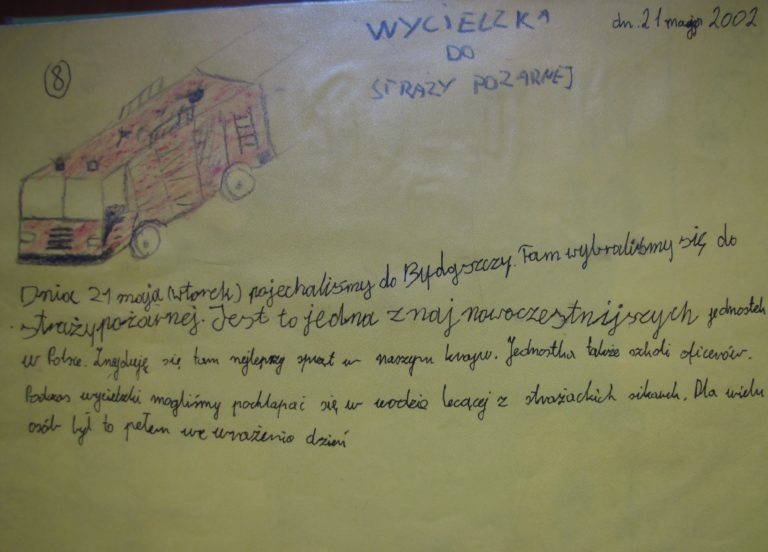 WYCIECZKA
DO
STRAŻY POŻARNEJ
dn. 21 maja 2002
8
Dnia 21 maja (wtorek) pojechaliśmy do Bydgoszczy. Tam wybraliśmy się do
straży pożarnej. Jest to jedna z naj nowocześniejszych jednostek
w Polsce. Znajduję się tam najlepszy sprzęt w naszym kraju. Jednostka także szkoli oficerów.
Podczas wycieczki mogliśmy pochlapać się w wodzie lecącej z strażackich sikawek. Dla wielu
osób był to pełem we wrażenia dzień